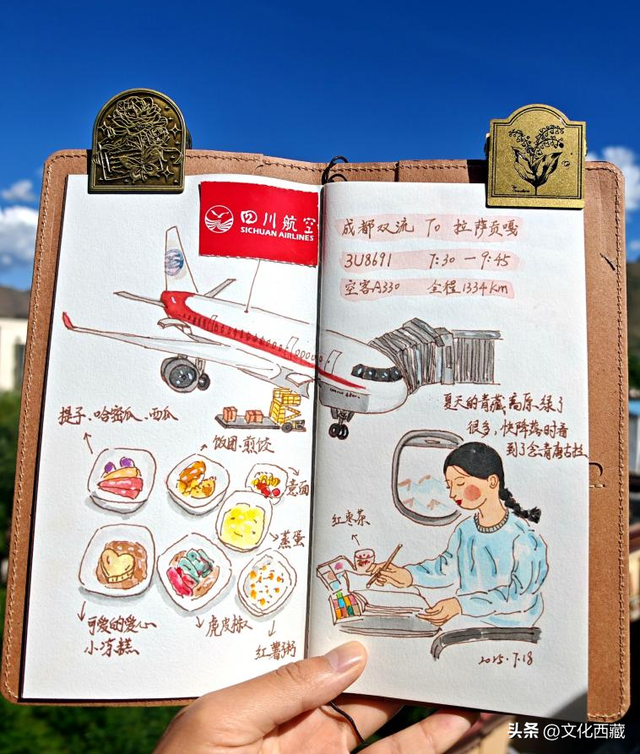 四川航空
SICHUAN AIRLINES
提子、哈密瓜、西瓜
饭团、煎饺
意面
蒸蛋
可爱的爱心
小凉糕
虎皮椒
红薯粥
成都双流 To 拉萨贡嘎
3U8691 7:30 — 9:45
空客A330 全程1334km
夏天的青藏高原绿了
很多,快降落时看
到了念青唐古拉
红枣茶
2025.7.18
头条 @文化西藏